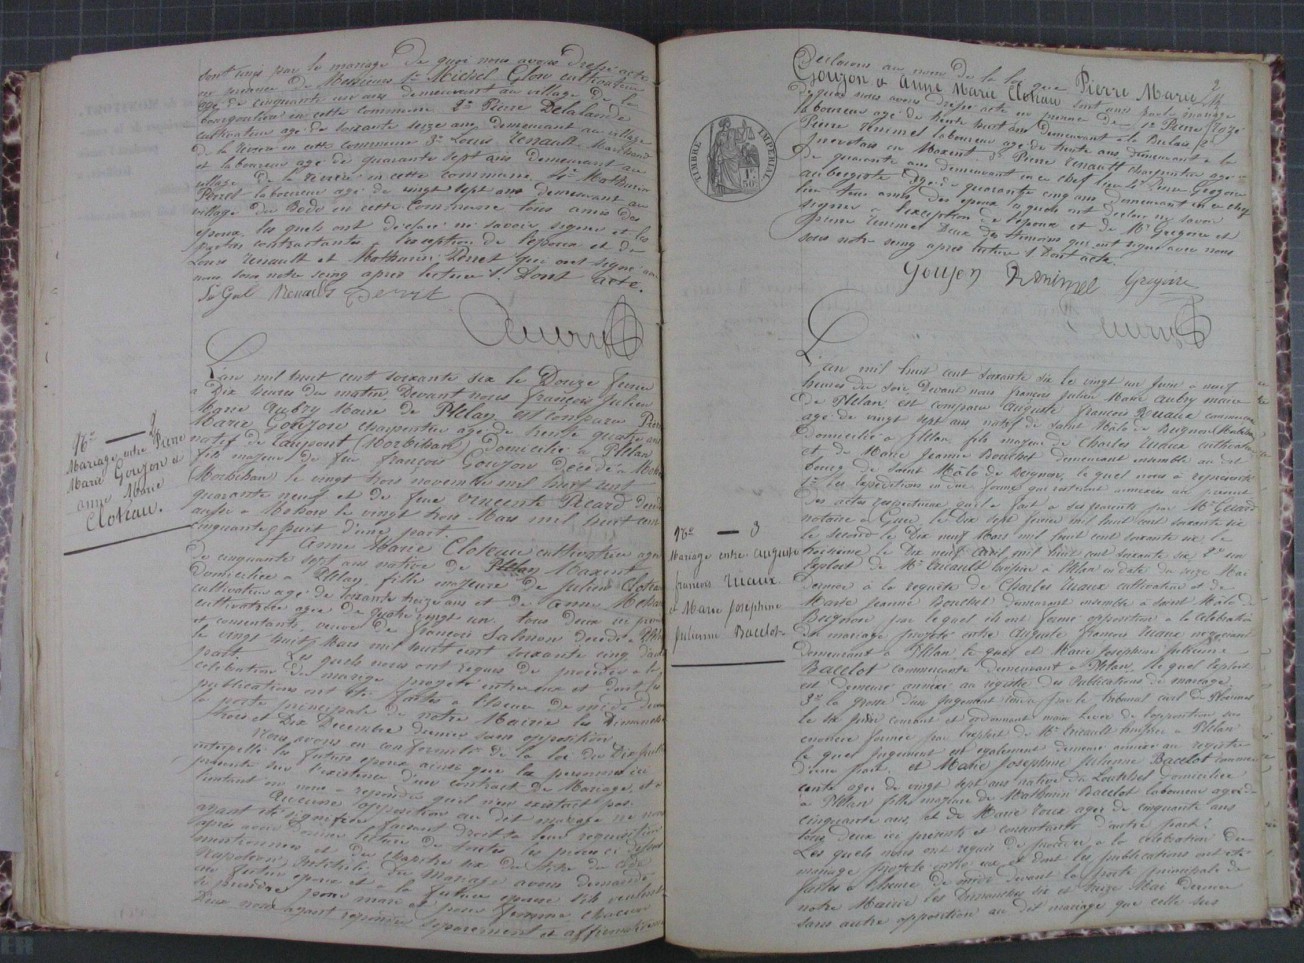 sont unis par le mariage De quoi nous avons dressé acte
en presence de Messieurs 1º Michel Glon cultivateur
agé de cinquante un ans demeurant au village de la
en cette commune 2º Pierre Delalande
cultivateur agé de soixante seize ans demeurant au village
de la Rivière en cette commune 3º Louis Renault Marchand
et laboureur agé de quarante sept ans demeurant au
village de la Rivière en cette commune 4º Mathurin
Perret laboureur agé de vingt sept ans demeurant au
village du Bodo en cette Commune tous amis des
époux, les quels ont déclaré ne savoir signer et les
parties contractantes à l'exception de l'époux et de
Louis Renault et Mathurin Perret qui ont signé avec
nous sous notre seing après lecture / . Dont acte.
Le Gal Renault Perret
Aubry
Nº 2
Mariage entre Pierre
Marie Goujon et
anne Marie
Cloteau.
L'an mil huit cent soixante six le Douze Février
à Dix heures du matin Devant nous François Julien
Marie Aubry Maire de Plélan, est comparu Pierre
Marie Goujon charpentier agé de trente quatre ans
natif de Campont (Morbihan) Domicilié à Plélan
fils majeur de feu françois Goujon décédé à Mohon
Morbihan le vingt trois novembre mil huit cent
quarante neuf et de feue Vincente Picard décédée
aussi à Mohon le vingt trois Mars mil huit cent
cinquante d'une part.
Anne Marie Cloteau cultivatrice agée
de cinquante sept ans native de Plélan Maxent
domiciliée à Plélan, fille majeure de Julien Cloteau
cultivateur agé de soixante treize ans et de Anne
cultivatrice agée de quatre vingt un tous deux ici présents
et consentants, veuve de françois Salmon décédé à Plélan
le vingt huit Mars mil huit cent soixante cinq d'autre
part. Les quels nous ont requis de procéder à la
célébration du mariage projeté entre eux et dont les
publications ont été faites à l'heure de midi devant
la porte principale de notre Mairie les Dimanches
trois et Dix Décembre dernier sans opposition
Nous avons en conformité de la loi du Dix juillet
interpellé les futurs époux ainsi que les personnes ici
présentes sur l'existence d'un contract de Mariage, et
ont répondu quil n'en existait pas.
Aucune opposition au dit mariage ne nous
ayant été signifiée, faisant droit à leur réquisition
après avoir donné lecture de toutes les pièces ci dessus
mentionnées et du chapitre six du titre du Code
Napoléon intitulé du Mariage avons demandé
au futur époux et à la future épouse s'ils veulent
se prendre pour mari et pour femme, chacun
d'eux nous ayant répondu séparement et affirmativement
TIMBRE IMPÉRIAL
1F
50C
Déclarons au nom de la loi que Pierre Marie
Goujon et Anne Marie Cloteau sont unis par le mariage
de quoi nous avons dressé acte en presence de 1º Pierre
laboureur agé de trente huit ans demeurant à la
Pierre Remmel laboureur agé de trente ans demeurant à la
en Maxent, 3º Pierre Renault charpentier agé
de quarante ans demeurant en ce chef lieu 4º Pierre Gregoire
aubergiste agé de quarante cinq ans demeurant en ce chef
lieu tous amis des époux les quels ont déclaré ne savoir
signer à l'exception de l'époux et de Mr Gregoire et
Pierre Remmel Deux des témoins qui ont signé avec nous
sous notre seing après lecture / Dont acte.
Goujon Remmel Gregoire
Aubry
Nº 3
Mariage entre Auguste
françois Ruaux
et Marie Joséphine
Julienne Bacelot
L'an mil huit cent soixante six le vingt un Juin à neuf
heures du soir Devant nous françois Julien Marie Aubry maire
de Plélan est comparu Auguste François Ruaux commerçant
agé de vingt sept ans natif de Saint Malo de Beignon Morbihan
Domicilié à Plélan fils majeur de Charles Ruaux cultivateur
et de Marie Jeanne Bouchet demeurant ensemble au dit
bourg de Saint Malo de Beignon, le quel nous a représenté
1º Les expéditions en due forme qui resteront annexées au présent
des actes respectueux quil a fait à ses parents par Me Guiard
notaire à Guer, le Dix sept février mil huit cent soixante six
le second le Dix neuf Mars mil huit cent soixante six le
troisième le Dix neuf Avril mil huit cent soixante six 2º un
exploit de Me huissier à Plélan en date du seize Mai
dernier à la requête de Charles Ruaux cultivateur et de
Marie Jeanne Bouchet demeurant ensemble à Saint Malo de
Beignon par lequel ils ont formé opposition à la célébration
du mariage projeté entre Auguste François Ruaux négociant
demeurant à Plélan le quel et Marie Joséphine Julienne
Bacelot commerçante demeurant à Plélan, le quel exploit
est demeuré annexé au registre des Publications de mariage,
3º la grosse d'un jugement rendu par le tribunal civil de
le six juin courant et ordonnant main levée de l'opposition sus
énoncée formée par exploit de Me huissier à Plélan
le quel jugement est également demeuré annexé au registre
d'une part. et Marie Joséphine Julienne Bacelot commer
çante agée de vingt sept ans native du Loutehel domiciliée
à Plélan fille majeure de Mathurin Bacelot laboureur agé de
cinquante ans, et de Marie agée de cinquante ans
tous deux ici présents et consentants d'autre part.
Les quels nous ont requis de procéder à la célébration du
mariage projeté entre eux et dont les publications ont été
faites à l'heure de midi devant la porte principale de
notre Mairie les Dimanches six et treize Mai dernier
sans autre opposition au dit mariage que celle sus